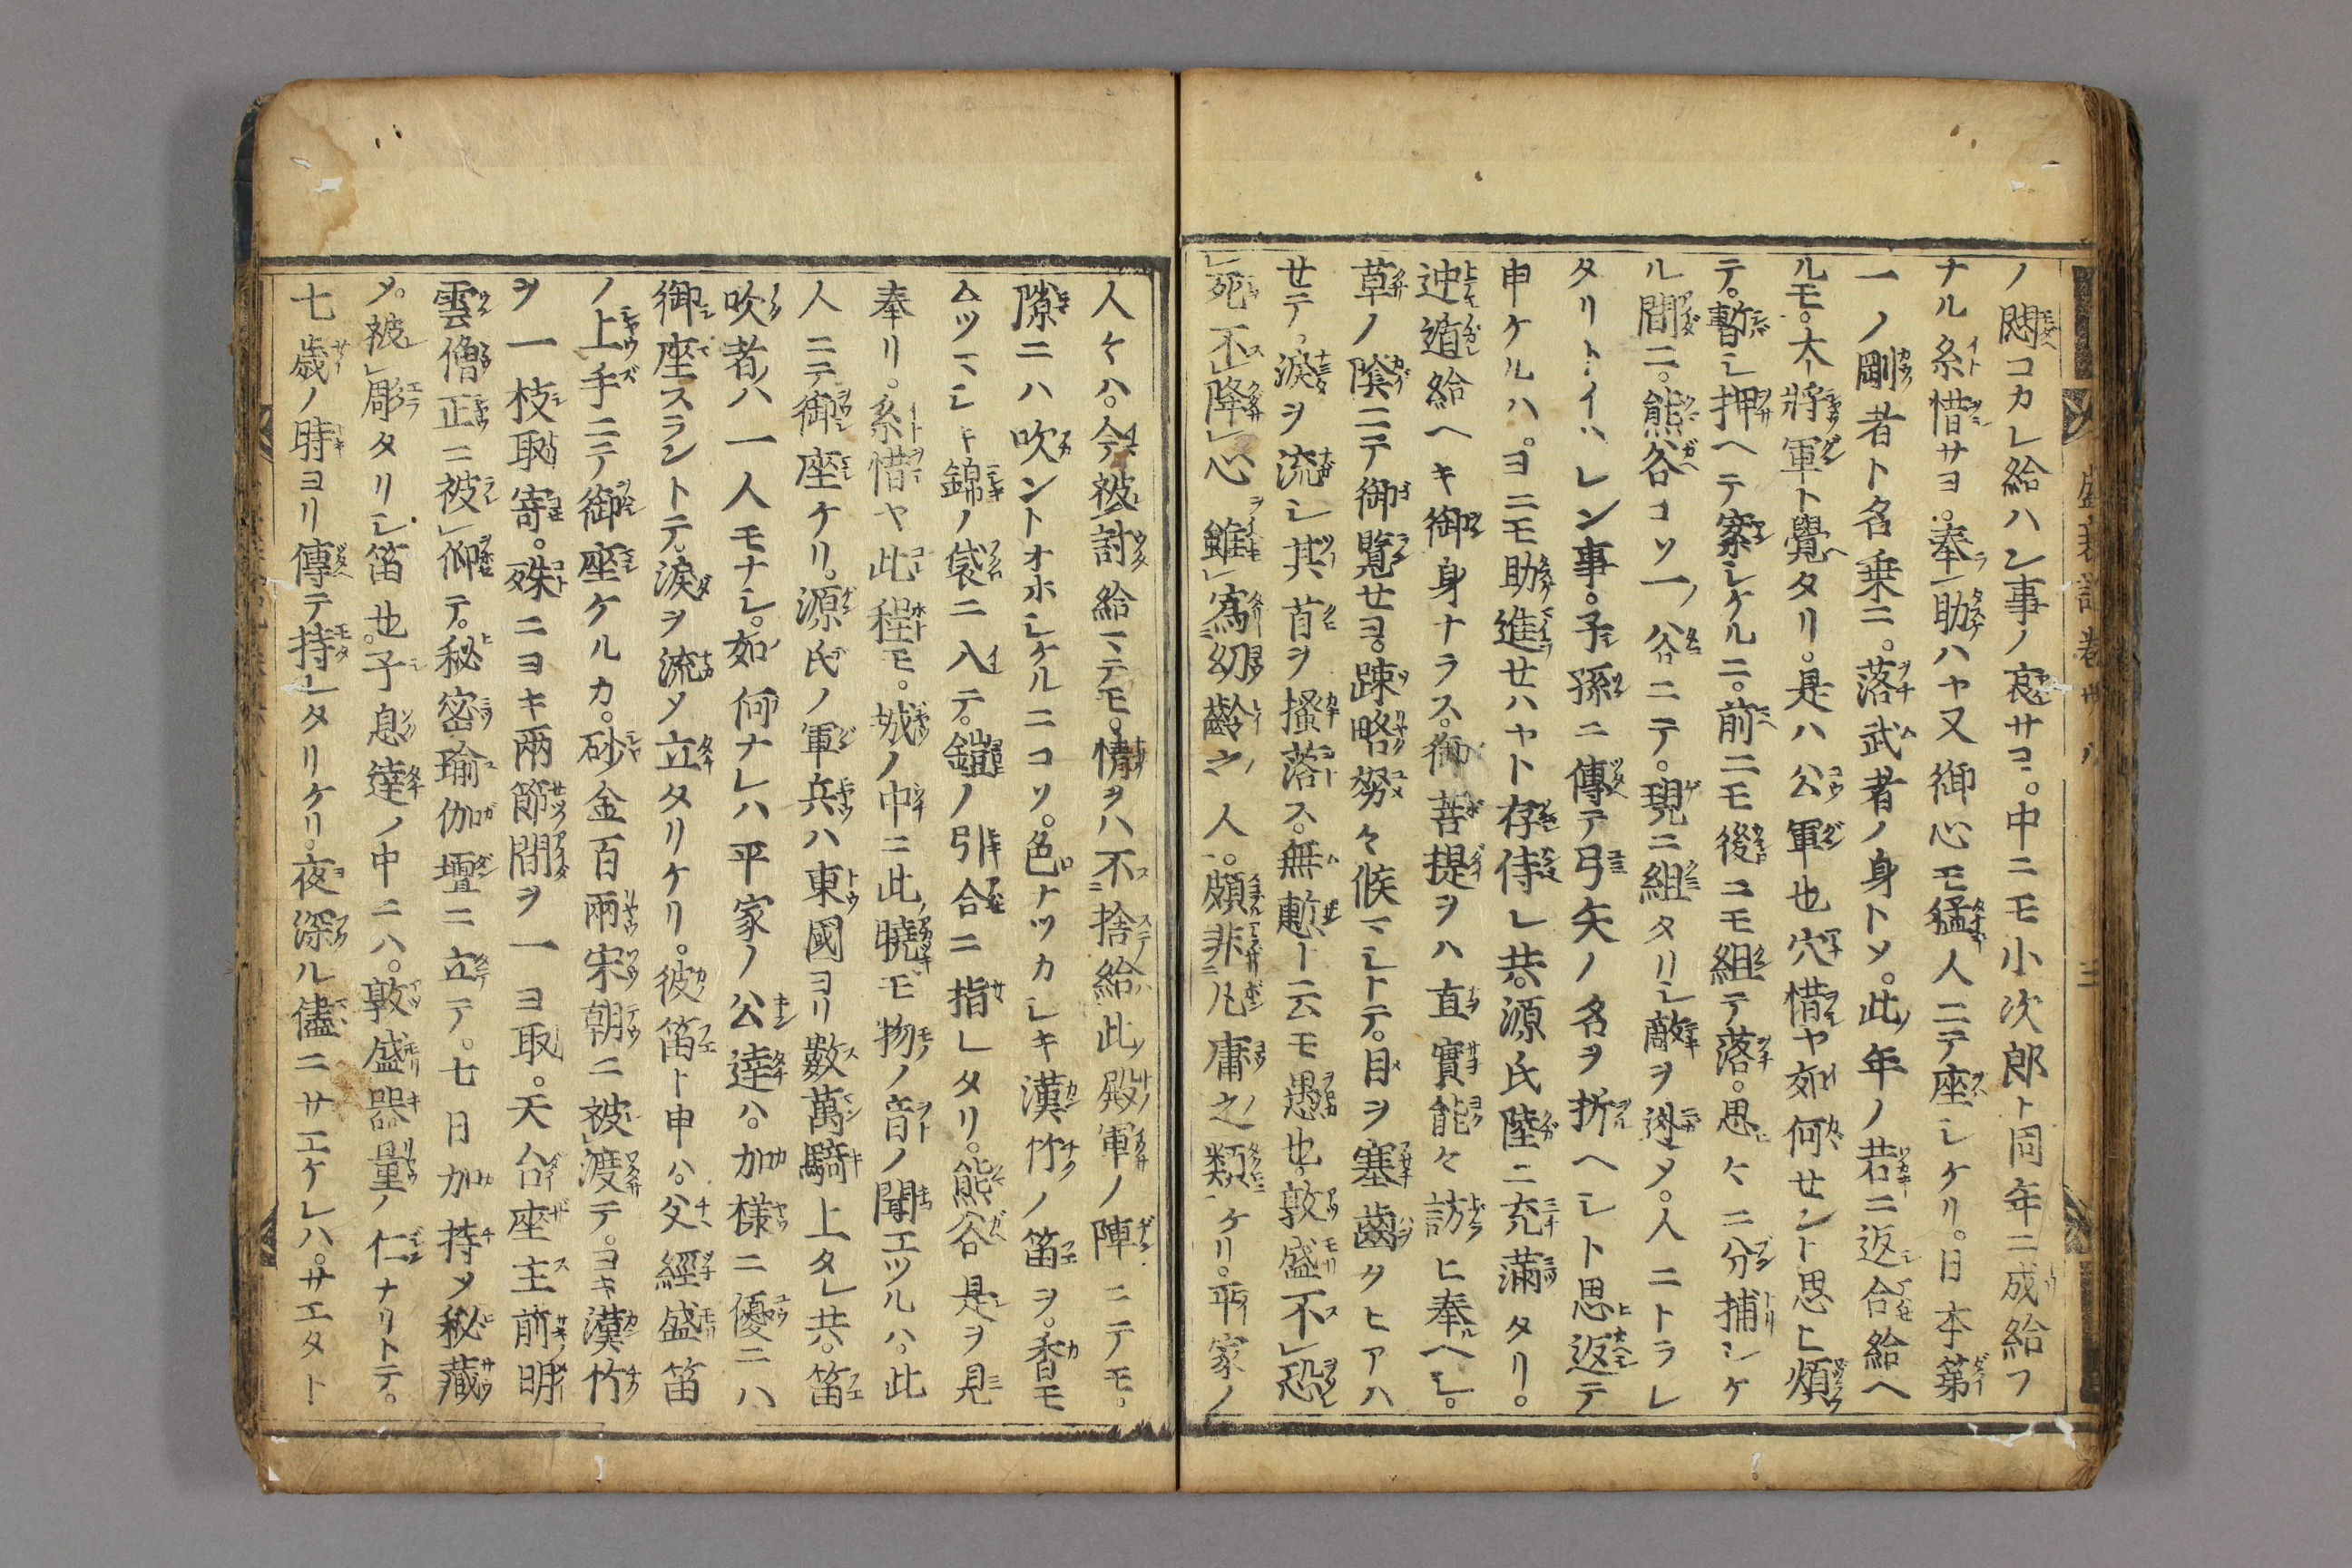 ノ悶コカレ給ハン事ノ哀サヨ。中ニモ小次郎ト同年ニ成給フ
ナル糸惜サヨ。奉助ハヤ又御心モ猛人ニテ座シケリ。日本第
一ノ剛者ト名乗ニ。落武者ノ身トメ。此年ノ若ニ返合給ヘ
ルモ。大將軍ト覺タリ。是ハ公軍也穴惜ヤ如何セント思ヒ煩
テ。暫シ押ヘテ案シケルニ。前ニモ後ニモ組テ落。思々ニ分捕シケ
ル間ニ。熊谷コソ一谷ニテ。現ニ組タリシ敵ヲ迯メ。人ニトラレ
タリトイハレン事。子孫ニ傳テ弓矢ノ名ヲ折ヘシト思返テ
申ケルハ。ヨニモ助進セハヤト存侍レ共。源氏陸ニ充滿タリ。
迚遁給ヘキ御身ナラス。御菩提ヲハ直實能々訪ヒ奉ヘシ。
草ノ陰ニテ御覽セヨ。踈略努々候マシトテ。目ヲ塞齒クヒアハ
セテ。涙ヲ流シ其首ヲ搔落ス。無慙ト云モ愚也。敦盛不恐
死不降心雖爲幼齡之人。頗非凡庸之類ケリ。平家ノ
人々ハ。今被討給マテモ。情ヲハ不捨給此殿軍ノ陣ニテモ。
隙ニハ吹ントオホシケルニコソ。色ナツカシキ漢竹ノ笛ヲ。香モ
ムツマシキ錦ノ袋ニ入テ。鎧ノ引合ニ指レタリ。熊谷是ヲ見
奉リ。糸惜ヤ此程モ。城ノ中ニ此曉モ物ノ音ノ聞エツルハ。此
人ニテ御座ケリ。源氏ノ軍兵ハ東國ヨリ數萬騎上タレ共。笛
吹者ハ一人モナシ。如何ナレハ平家ノ公達ハ。加樣ニ優ニハ
御座スラントテ。涙ヲ流メ立タリケリ。彼笛ト申ハ。父經盛笛
ノ上手ニテ御座ケルカ。砂金百兩宋朝ニ被渡テ。ヨキ漢竹
ヲ一枝取寄。殊ニヨキ兩節間ヲ一ヨ取。天台座主前明
雲僧正ニ被仰テ。秘密瑜伽壇ニ立テ。七日加持メ秘藏
メ。被彫タリシ笛也。子息達ノ中ニハ。敦盛器量ノ仁ナリトテ。
七歳ノ時ヨリ傳テ持レタリケリ。夜深ル儘ニサエケレハ。サエタト